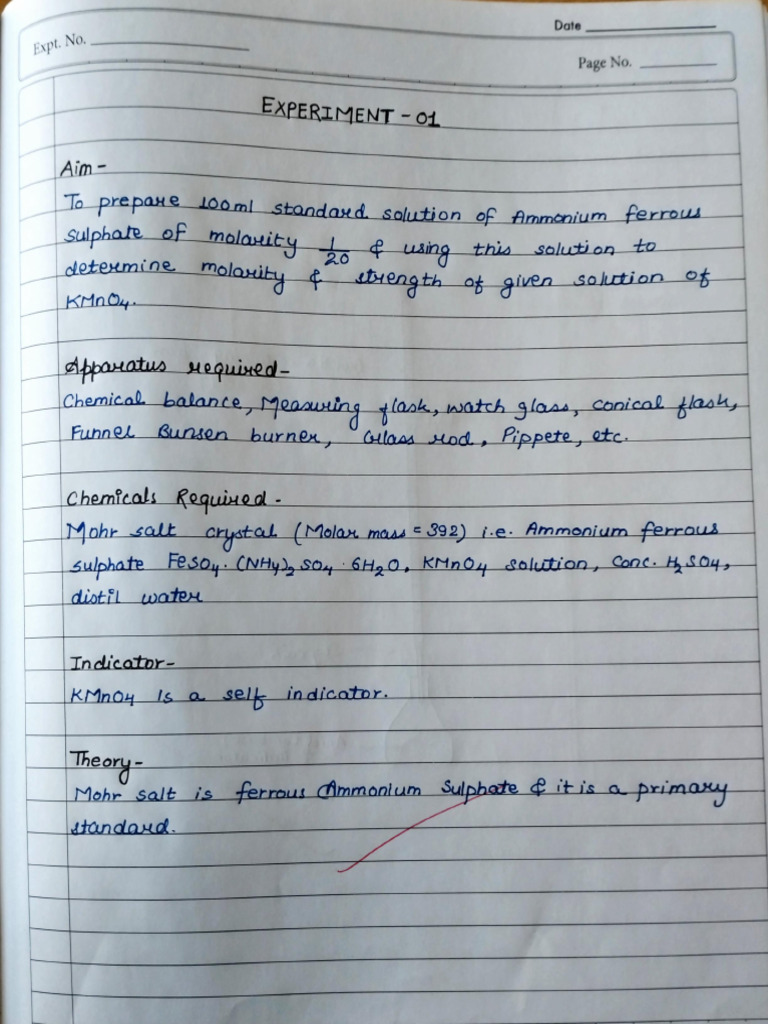 Date
Expt. No.
Page No.
EXPERIMENT - 01
Aim -
To prepare 100ml standard solution of Ammonium ferrous
sulphate of molarity 1/20 & using this solution to
determine molarity & strength of given solution of
KMnO4.
Apparatus required-
Chemical balance, Measuring flask, watch glass, conical flask,
Funnel Bunsen burner, Glass rod, Pippete, etc.
Chemicals Required -
Mohr salt crystal (Molar mass = 392) i.e. Ammonium ferrous
sulphate FeSO4. (NH4)2 SO4 . 6H2O, KMnO4 solution, Conc. H2SO4,
distil water
Indicator-
KMnO4 Is a self indicator.
Theory-
Mohr salt is ferrous Ammonium Sulphate & it is a primary
standard.